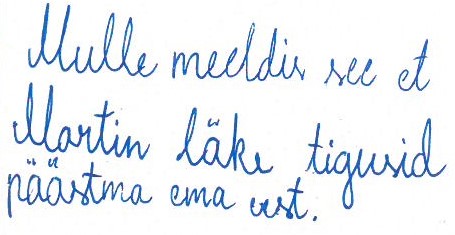 Mulle meeldis see et
Martin läke tigusid
päästma ema eest.